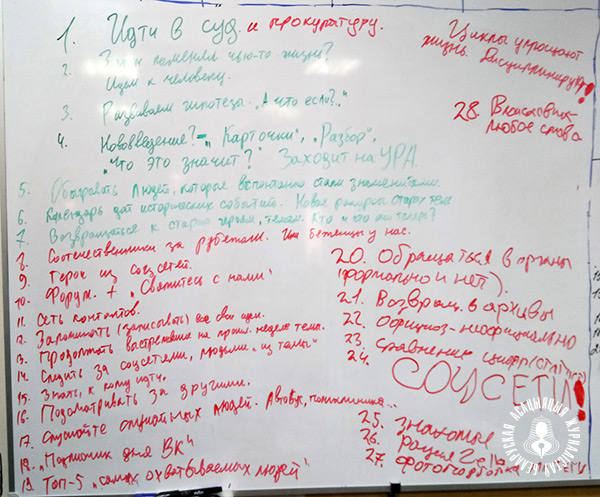 1. Идти в суд и прокуратуру.
2. Закон поменял чью-то жизнь?
Идем к человеку.
3. Развиваем гипотезы „А что если?.."
4. Нововведение? – „Карточки", „Разбор",
„Что это значит?" Заходит на УРА.
5. Обыгрывать людей, которые внезапно стали знаменитыми.
6. Календарь дат исторических событий. Новое развитие старых тем
7. Возвращаться к старым героям, темам. Кто и что они теперь?
8. Соотечественники за рубежом. Или беженцы у нас.
9. Герои из соцсетей.
10. Форум. + „Свяжитесь с нами"
11. Сеть контактов.
12. Запоминать (записывать) все свои идеи.
13. Продолжать выстрелившие на прошл. неделе темы.
14. Следить за соцсетями, людьми „из темы"
15. Знать, к кому идти.
16. Подсматривать за другими.
17. Слушайте опытных людей. Автобус, поликлиника...
18. „Подписчик дня ВК"
19. Топ-5 „самых охватываемых людей"
Циклы упрощают
жизнь. Дисциплинируют!
28. Власовик -
любое слово
20. Обращаться в органы
(формально и нет).
21. Возвращ. в архивы
22. Официоз-неофициально
23. сравнение цифр (статист.)
24. СОЦСЕТИ!
25. Знакомые
26. рация
27. фотоподборка
БЕЛАРУСКАЯ АСАЦЫЯЦЫЯ ЖУРНАЛІСТАЎ